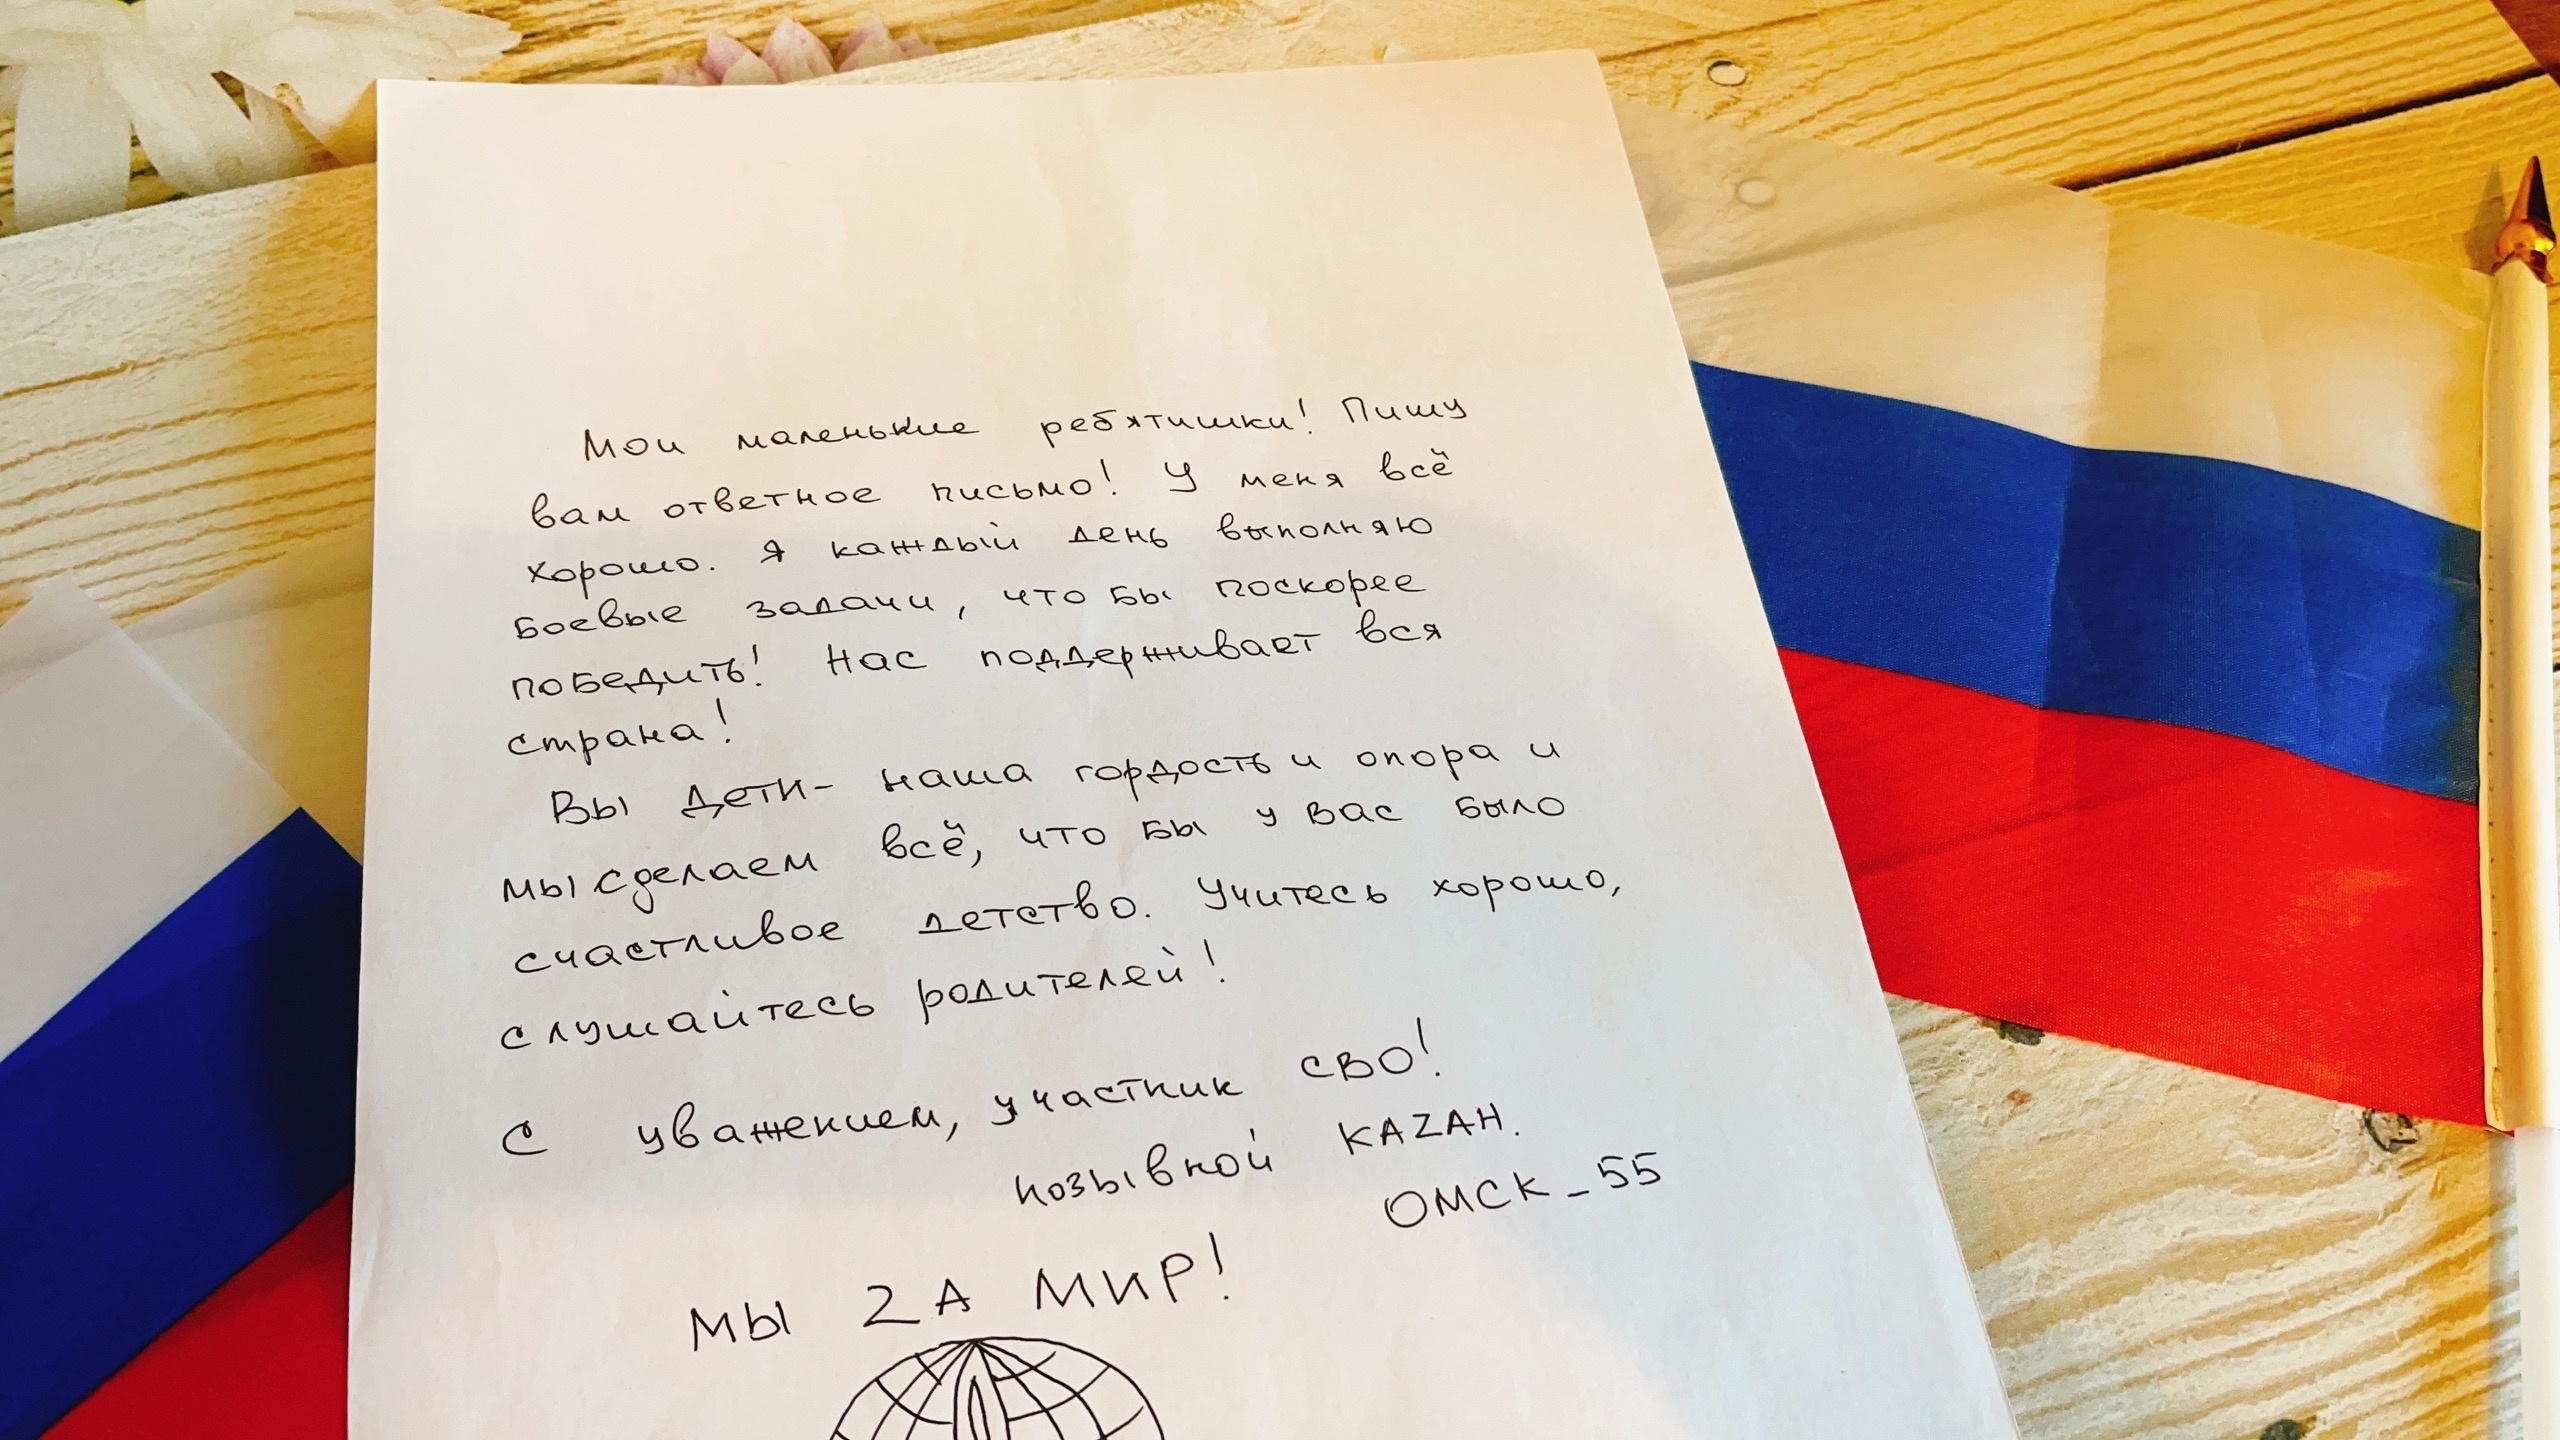 Мои маленькие ребятишки! Пишу
вам ответное письмо! У меня всё
хорошо. Я каждый день выполняю
боевые задачи, что бы поскорее
победить! Нас поддерживает вся
страна!
Вы дети- наша гордость и опора и
мы сделаем всё, что бы у вас было
счастливое детство. Учитесь хорошо,
слушайтесь родителей!
С уважением, участник СВО!
позывной КАZАН.
ОМСК_55
МЫ ZА МИР!